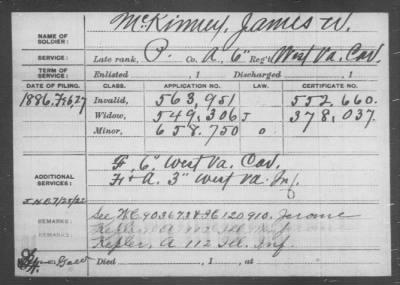 NAME OF SOLDIER: McKinney, James W.
SERVICE: Late rank, P. Co. A, 6" Reg't West Va. Cav.
TERM OF SERVICE: Enlisted , 1 Discharged , 1
DATE OF FILING. CLASS. APPLICATION NO. LAW. CERTIFICATE NO.
1886. Feb, 27 Invalid, 563,951 552.660.
Widow, 549,306 J 378,037.
Minor, 658.750 0
ADDITIONAL SERVICES: F, 6" West Va. Cav.
F+A. 3" West Va. Inf.
REMARKS: See WC 903673 + 120910. Jerome
REMARKS: Kepler, A 112 Ill. Inf
Kepler, A 112 Ill. Inf.
Died , 1 , at